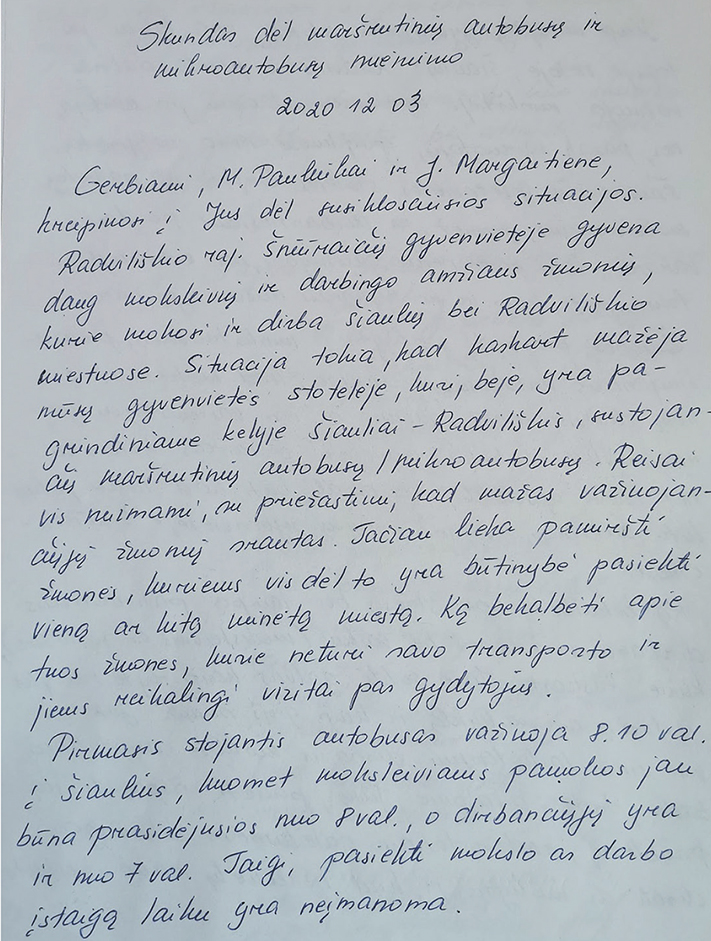 Skundas dėl maršrutinių autobusų ir
mikroautobusų nuėmimo
2020 12 03
Gerbiami, M. Paulikai ir J. Margaitiene,
kreipiuosi į Jus dėl susiklosčiusios situacijos.
Radviliškio raj. Šniūraičių gyvenvietėje gyvena
daug moksleivių ir darbingo amžiaus žmonių,
kurie mokosi ir dirba Šiaulių bei Radviliškio
miestuose. Situacija tokia, kad kaskart mažėja
mūsų gyvenvietės stotelėje, kuri, beje, yra pa-
grindiniame kelyje Šiauliai - Radviliškis, sustojan-
čių maršrutinių autobusų / mikroautobusų. Reisai
vis nuimami, su priežastimi, kad mažas važinojan-
čiųjų žmonių srautas. Tačiau lieka pamiršti
žmonės, kuriems vis dėl to yra būtinybė pasiekti
vieną ar kitą minėtą miestą. Ką bekalbėti apie
tuos žmones, kurie neturi savo transporto ir
jiems reikalingi vizitai pas gydytojus.
Pirmasis stojantis autobusas važinoja 8.10 val.
į Šiaulius, kuomet moksleiviams pamokos jau
būna prasidėjusios nuo 8 val., o dirbančiųjų yra
ir nuo 7 val. Taigi, pasiekti mokslo ar darbo
įstaigą laiku yra neįmanoma.